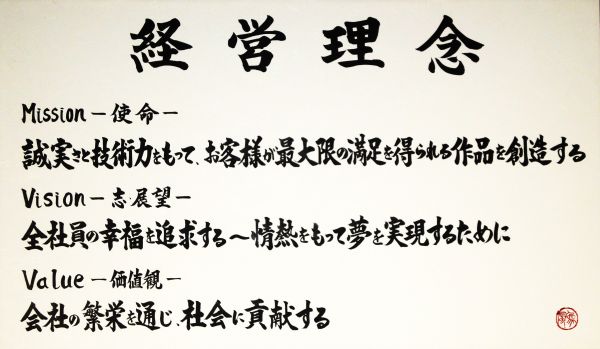 経営理念
Mission－使命－
誠実さと技術力をもって、お客様が最大限の満足を得られる作品を創造する
Vision－志展望－
全社員の幸福を追求する～情熱をもって夢を実現するために
Value－価値観－
会社の繁栄を通じ、社会に貢献する